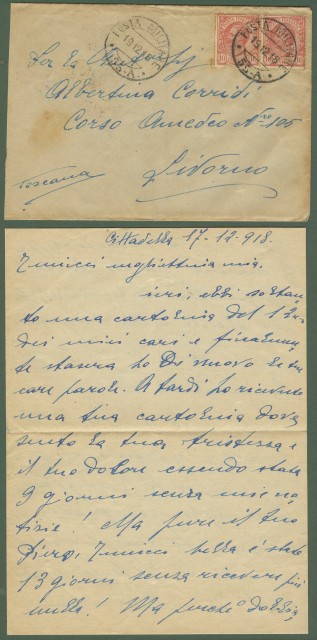 POSTA MILITARE
19.12.18
POSTA MILITARE
19.12.18
Per la
Albertina Corridi
Corso Amedeo Nro 105
Livorno
Toscana
Cittadella 17-12-918.
mogliettina mia.
ieri, ebbi soltan
to una cartolina del 12
dei miei cari e finalmen
te stasera ho di nuovo le tue
care parole. A tardi ho ricevuto
una tua cartolina dove
sento la tua tristezza e
il tuo dolore essendo stata
9 giorni senza mie no
tizie! Ma pure il tuo
bella è stato
13 giorni senza ricevere più
nulla! Ma perchè